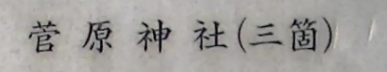 菅原神社(三箇)